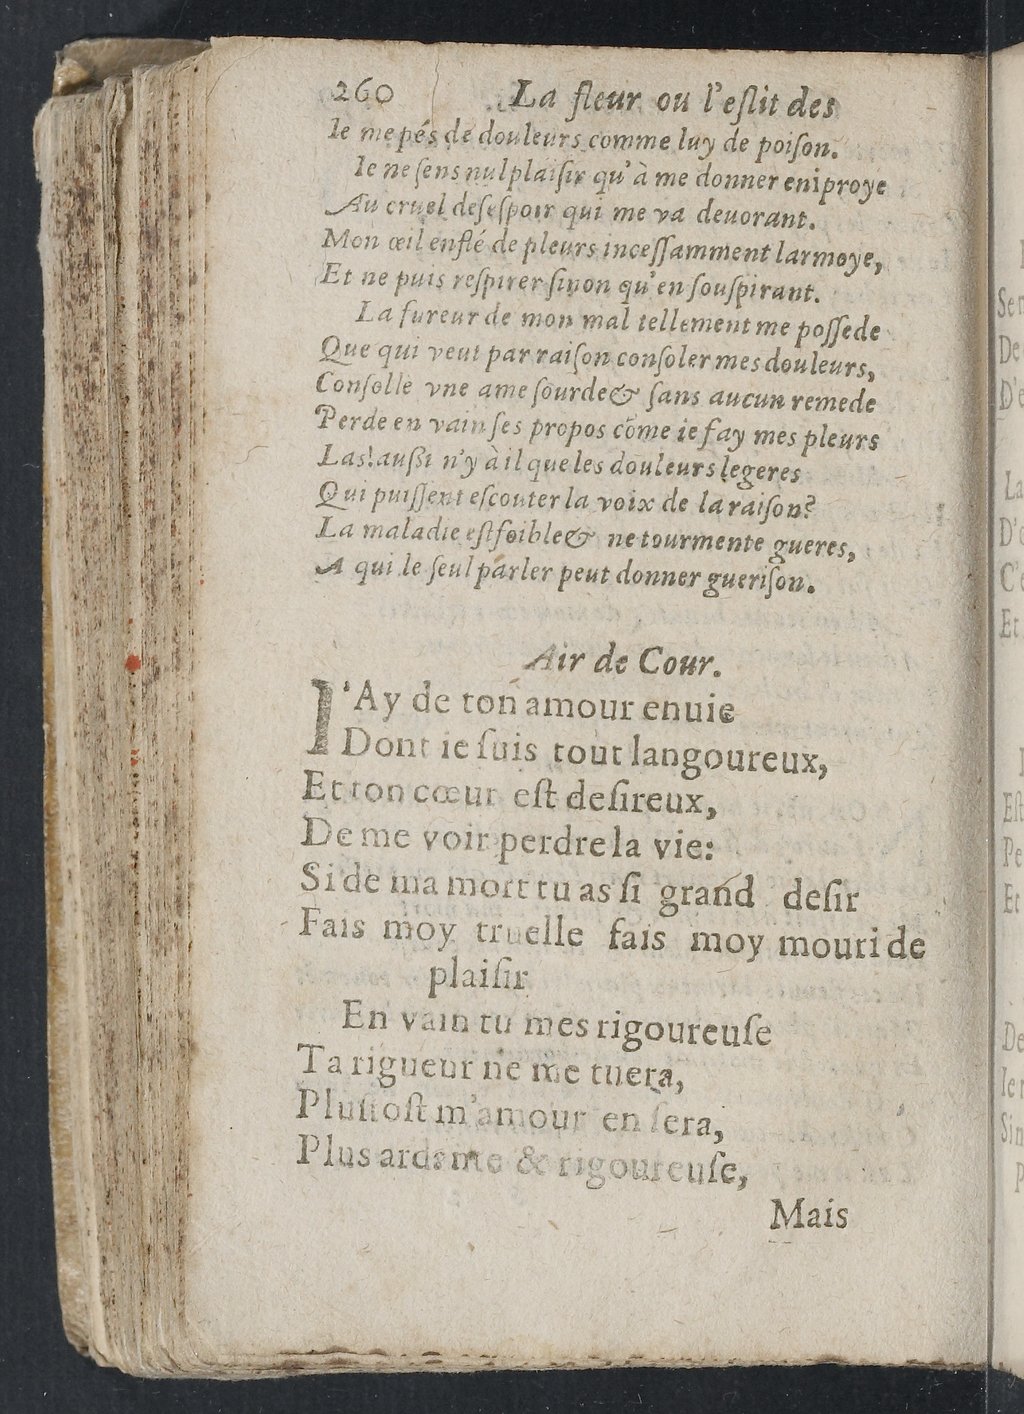 260 La fleur ou l'eslit des
Ie me pés de douleurs comme luy de poiſon.
Ie ne ſens nul plaiſir qu'à me donner en iproye
Au cruel deſeſpoir qui me va deuorant.
Mon œil enflé de pleurs inceſſamment larmoye,
Et ne puis reſpirer ſinon qu'en ſouſpirant.
La fureur de mon mal tellement me poſſede
Que qui veut par raiſon conſoler mes douleurs,
Conſolle vne ame ſourde & ſans aucun remede
Perde en vain ſes propos cōme ie fay mes pleurs
Las! auſſi n'y à il que les douleurs legeres
Qui puiſſent eſcouter la voix de la raiſon?
La maladie eſt foible & ne tourmente gueres,
A qui le ſeul parler peut donner gueriſon.
Air de Cour.
I'Ay de ton amour enuie
Dont ie ſuis tout langoureux,
Et ton cœur eſt deſireux,
De me voir perdre la vie:
Si de ma mort tu as ſi grand deſir
Fais moy truelle fais moy mouri de
plaiſir
En vain tu mes rigoureuſe
Ta rigueur ne me tuera,
Pluſtoſt m'amour en ſera,
Plus ardante & rigoureuſe,
Mais
Se
De
D'e
La
D'
C'
Et
Eſt
Pe
Et
De
Ie
Sin
P